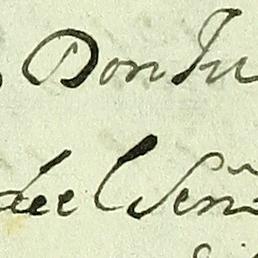 Don Ju
del Señ